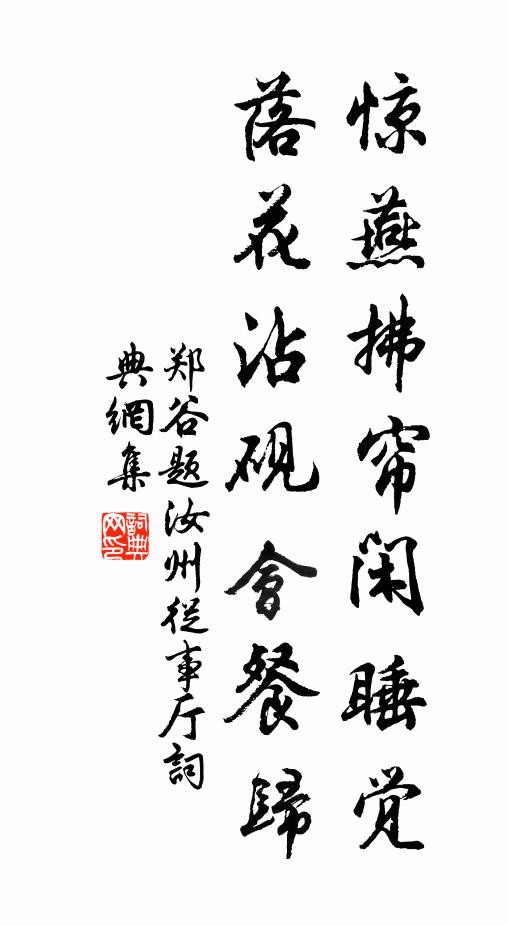 惊燕拂帘闲睡觉
落花沾砚会餐歸
郑谷题汝州從事厅詞
典網集
詞典网印